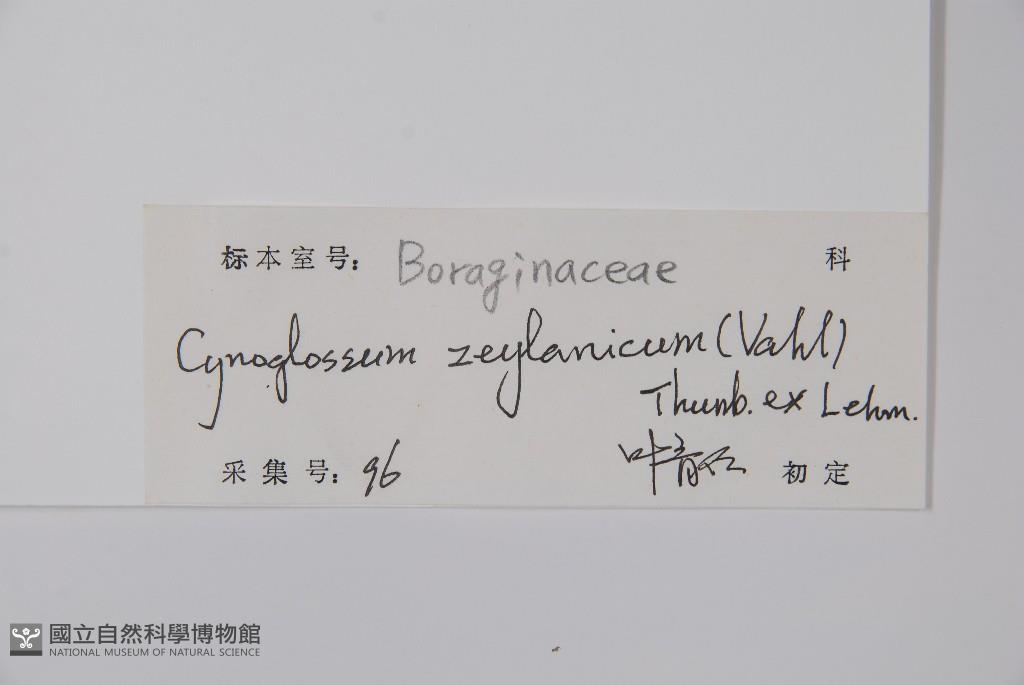 标本室号: Boraginaceae 科
Cynoglossum zeylanicum (Vahl)
Thunb. ex Lehm.
采集号: 96 叶青 初定
國立自然科學博物館
NATIONAL MUSEUM OF NATURAL SCIENCE